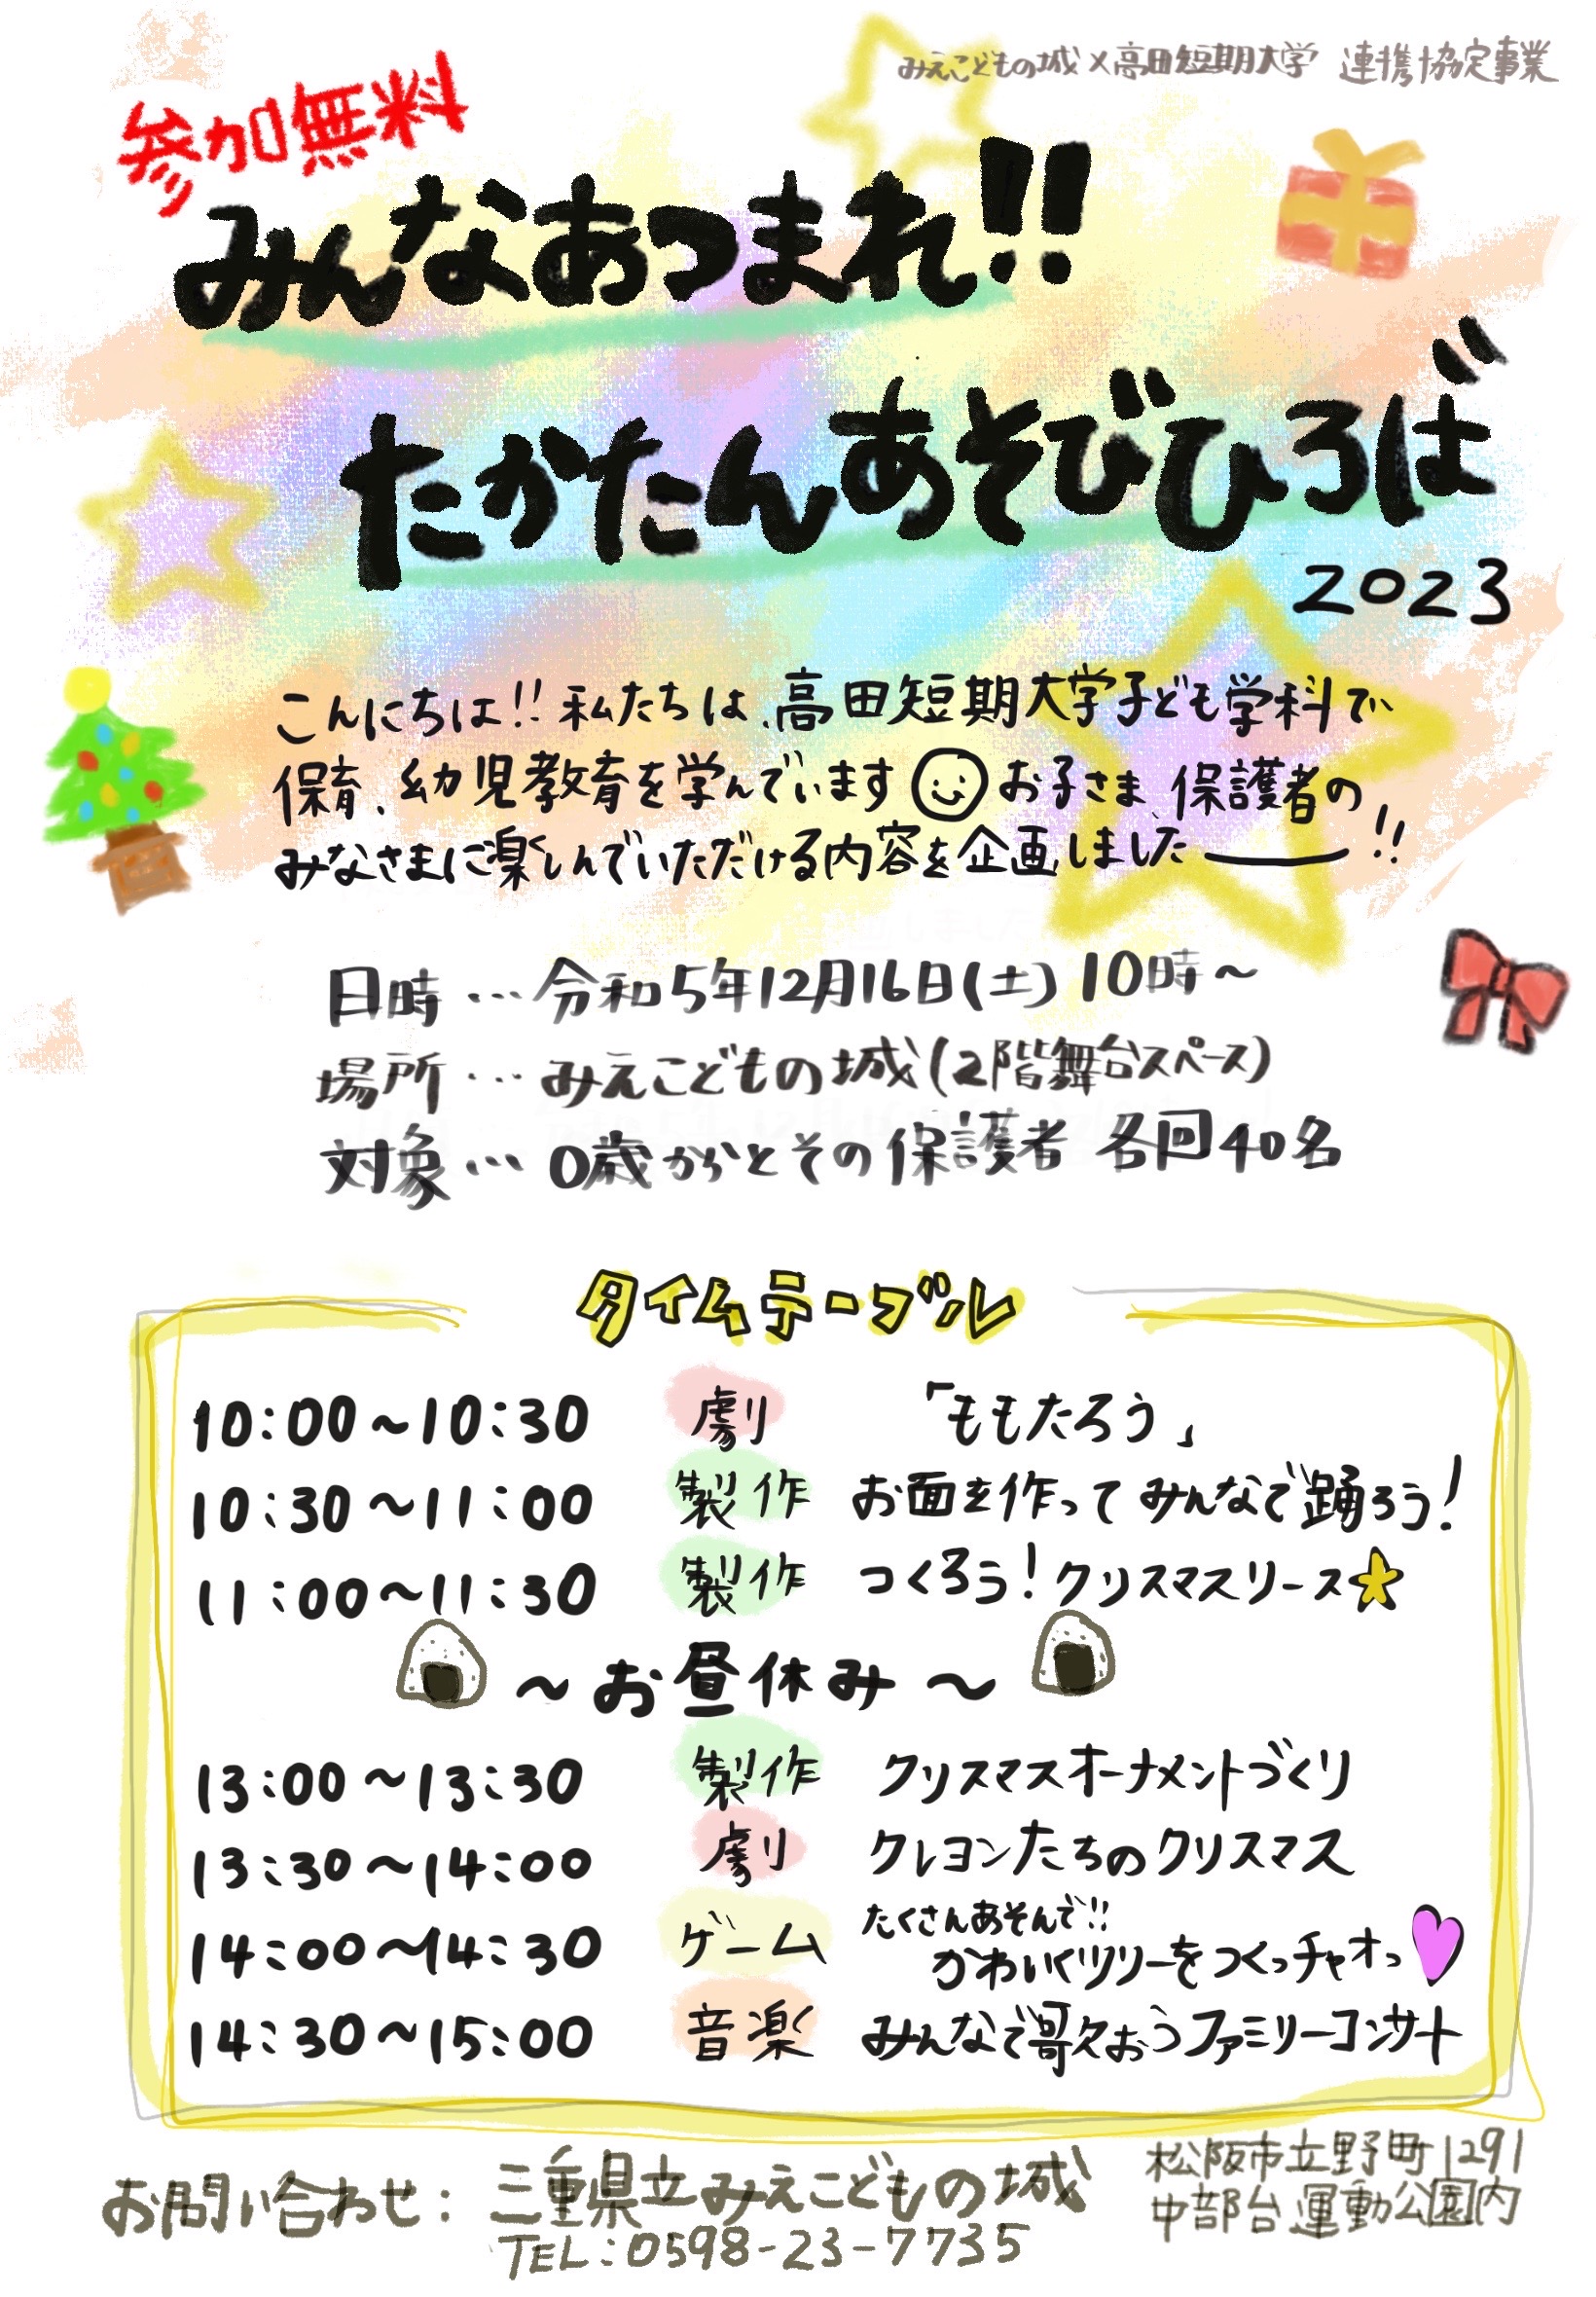 みえこどもの城×高田短期大学 連携協定事業
参加無料
みんなあつまれ!!
たかたんあそびひろば
2023
こんにちは!!私たちは、高田短期大学子ども学科で、
保育、幼児教育を学んでいます お子さま、保護者の
みなさまに楽しんでいただける内容を企画しましたー!!
日時…令和5年12月16日(土)10時~
場所…みえこどもの城(2階舞台スペース)
対象…0歳からとその保護者 各回40名
タイムテーブル
10:00~10:30 劇 「ももたろう」
10:30~11:00 製作 お面を作ってみんなで踊ろう!
11:00~11:30 製作 つくろう!クリスマスリース
~お昼休み~
13:00~13:30 製作 クリスマスオーナメントづくり
13:30~14:00 劇 クレヨンたちのクリスマス
14:00~14:30 ゲーム たくさんあそんで!!
かわいくツリーをつくっチャオっ
14:30~15:00 音楽 みんなで歌おうファミリーコンサート
お問い合わせ:三重県立みえこどもの城
TEL:0598-23-7735
松阪市立野町1291
中部台運動公園内